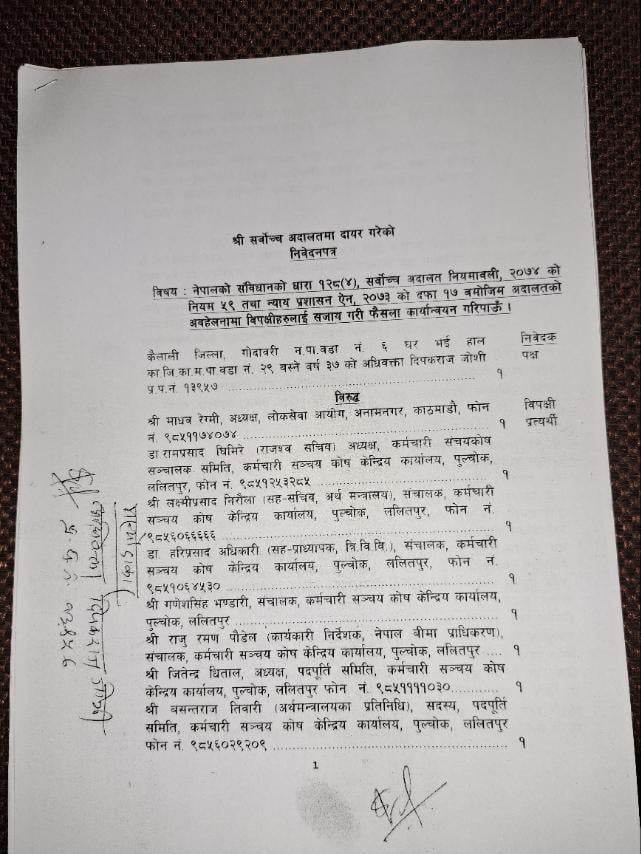 श्री सर्वोच्च अदालतमा दायर गरेको
निवेदनपत्र
विषय : नेपालको संविधानको धारा १२८(४), सर्वोच्च अदालत नियमावली, २०७४ को
नियम ५९ तथा न्याय प्रशासन ऐन, २०७३ को दफा १७ बमोजिम अदालतको
अवहेलनामा विपक्षीहरुलाई सजाय गरी फैसला कार्यान्वयन गरिपाऊँ ।
कैलाली जिल्ला, गोदावरी न.पा.वडा नं. ६ घर भई हाल
का.जि.का.म.पा वडा नं. २९ बस्ने वर्ष ३७ को अधिवक्ता दिपकराज जोशी
प्र.प.नं. १३९५७ ........ १
निवेदक
पक्ष
विरुद्ध
श्री माधव रेग्मी, अध्यक्ष, लोकसेवा आयोग, अनामनगर, काठमाडौ, फोन
नं. ९८५११७४०७४ ........ १
विपक्षी
प्रत्यर्थी
डा.रामप्रसाद घिमिरे (राजश्व सचिव) अध्यक्ष, कर्मचारी संचयकोष
सञ्चालक समिति, कर्मचारी सञ्चय कोष केन्द्रिय कार्यालय, पुल्चोक,
ललितपुर, फोन नं. ९८५१२५३२८५ ........ १
श्री लक्ष्मीप्रसाद निरौला (सह-सचिव, अर्थ मन्त्रालय), संचालक, कर्मचारी
सञ्चय कोष केन्द्रिय कार्यालय, पुल्चोक, ललितपुर, फोन नं.
९८५६०६६६६६ ........ १
डा. हरिप्रसाद अधिकारी (सह-प्राध्यापक, त्रि.वि.वि.), संचालक, कर्मचारी
सञ्चय कोष केन्द्रिय कार्यालय, पुल्चोक, ललितपुर, फोन नं.
९८५१०६४५३० ........ १
श्री गणेशसिंह भण्डारी, संचालक, कर्मचारी सञ्चय कोष केन्द्रिय कार्यालय,
पुल्चोक, ललितपुर ........ १
श्री राजु रमण पौडेल (कार्यकारी निर्देशक, नेपाल बीमा प्राधिकरण),
संचालक, कर्मचारी सञ्चय कोष केन्द्रिय कार्यालय, पुल्चोक, ललितपुर ..... १
श्री जितेन्द्र धिताल, अध्यक्ष, पदपूर्ति समिति, कर्मचारी सञ्चय कोष
केन्द्रिय कार्यालय, पुल्चोक, ललितपुर फोन नं. ९८५११११०३० ........ १
श्री बसन्तराज तिवारी (अर्थमन्त्रालयका प्रतिनिधि), सदस्य, पदपूर्ति
समिति, कर्मचारी सञ्चय कोष केन्द्रिय कार्यालय, पुल्चोक, ललितपुर
फोन नं. ९८५६०२९२०९ ........ १
1